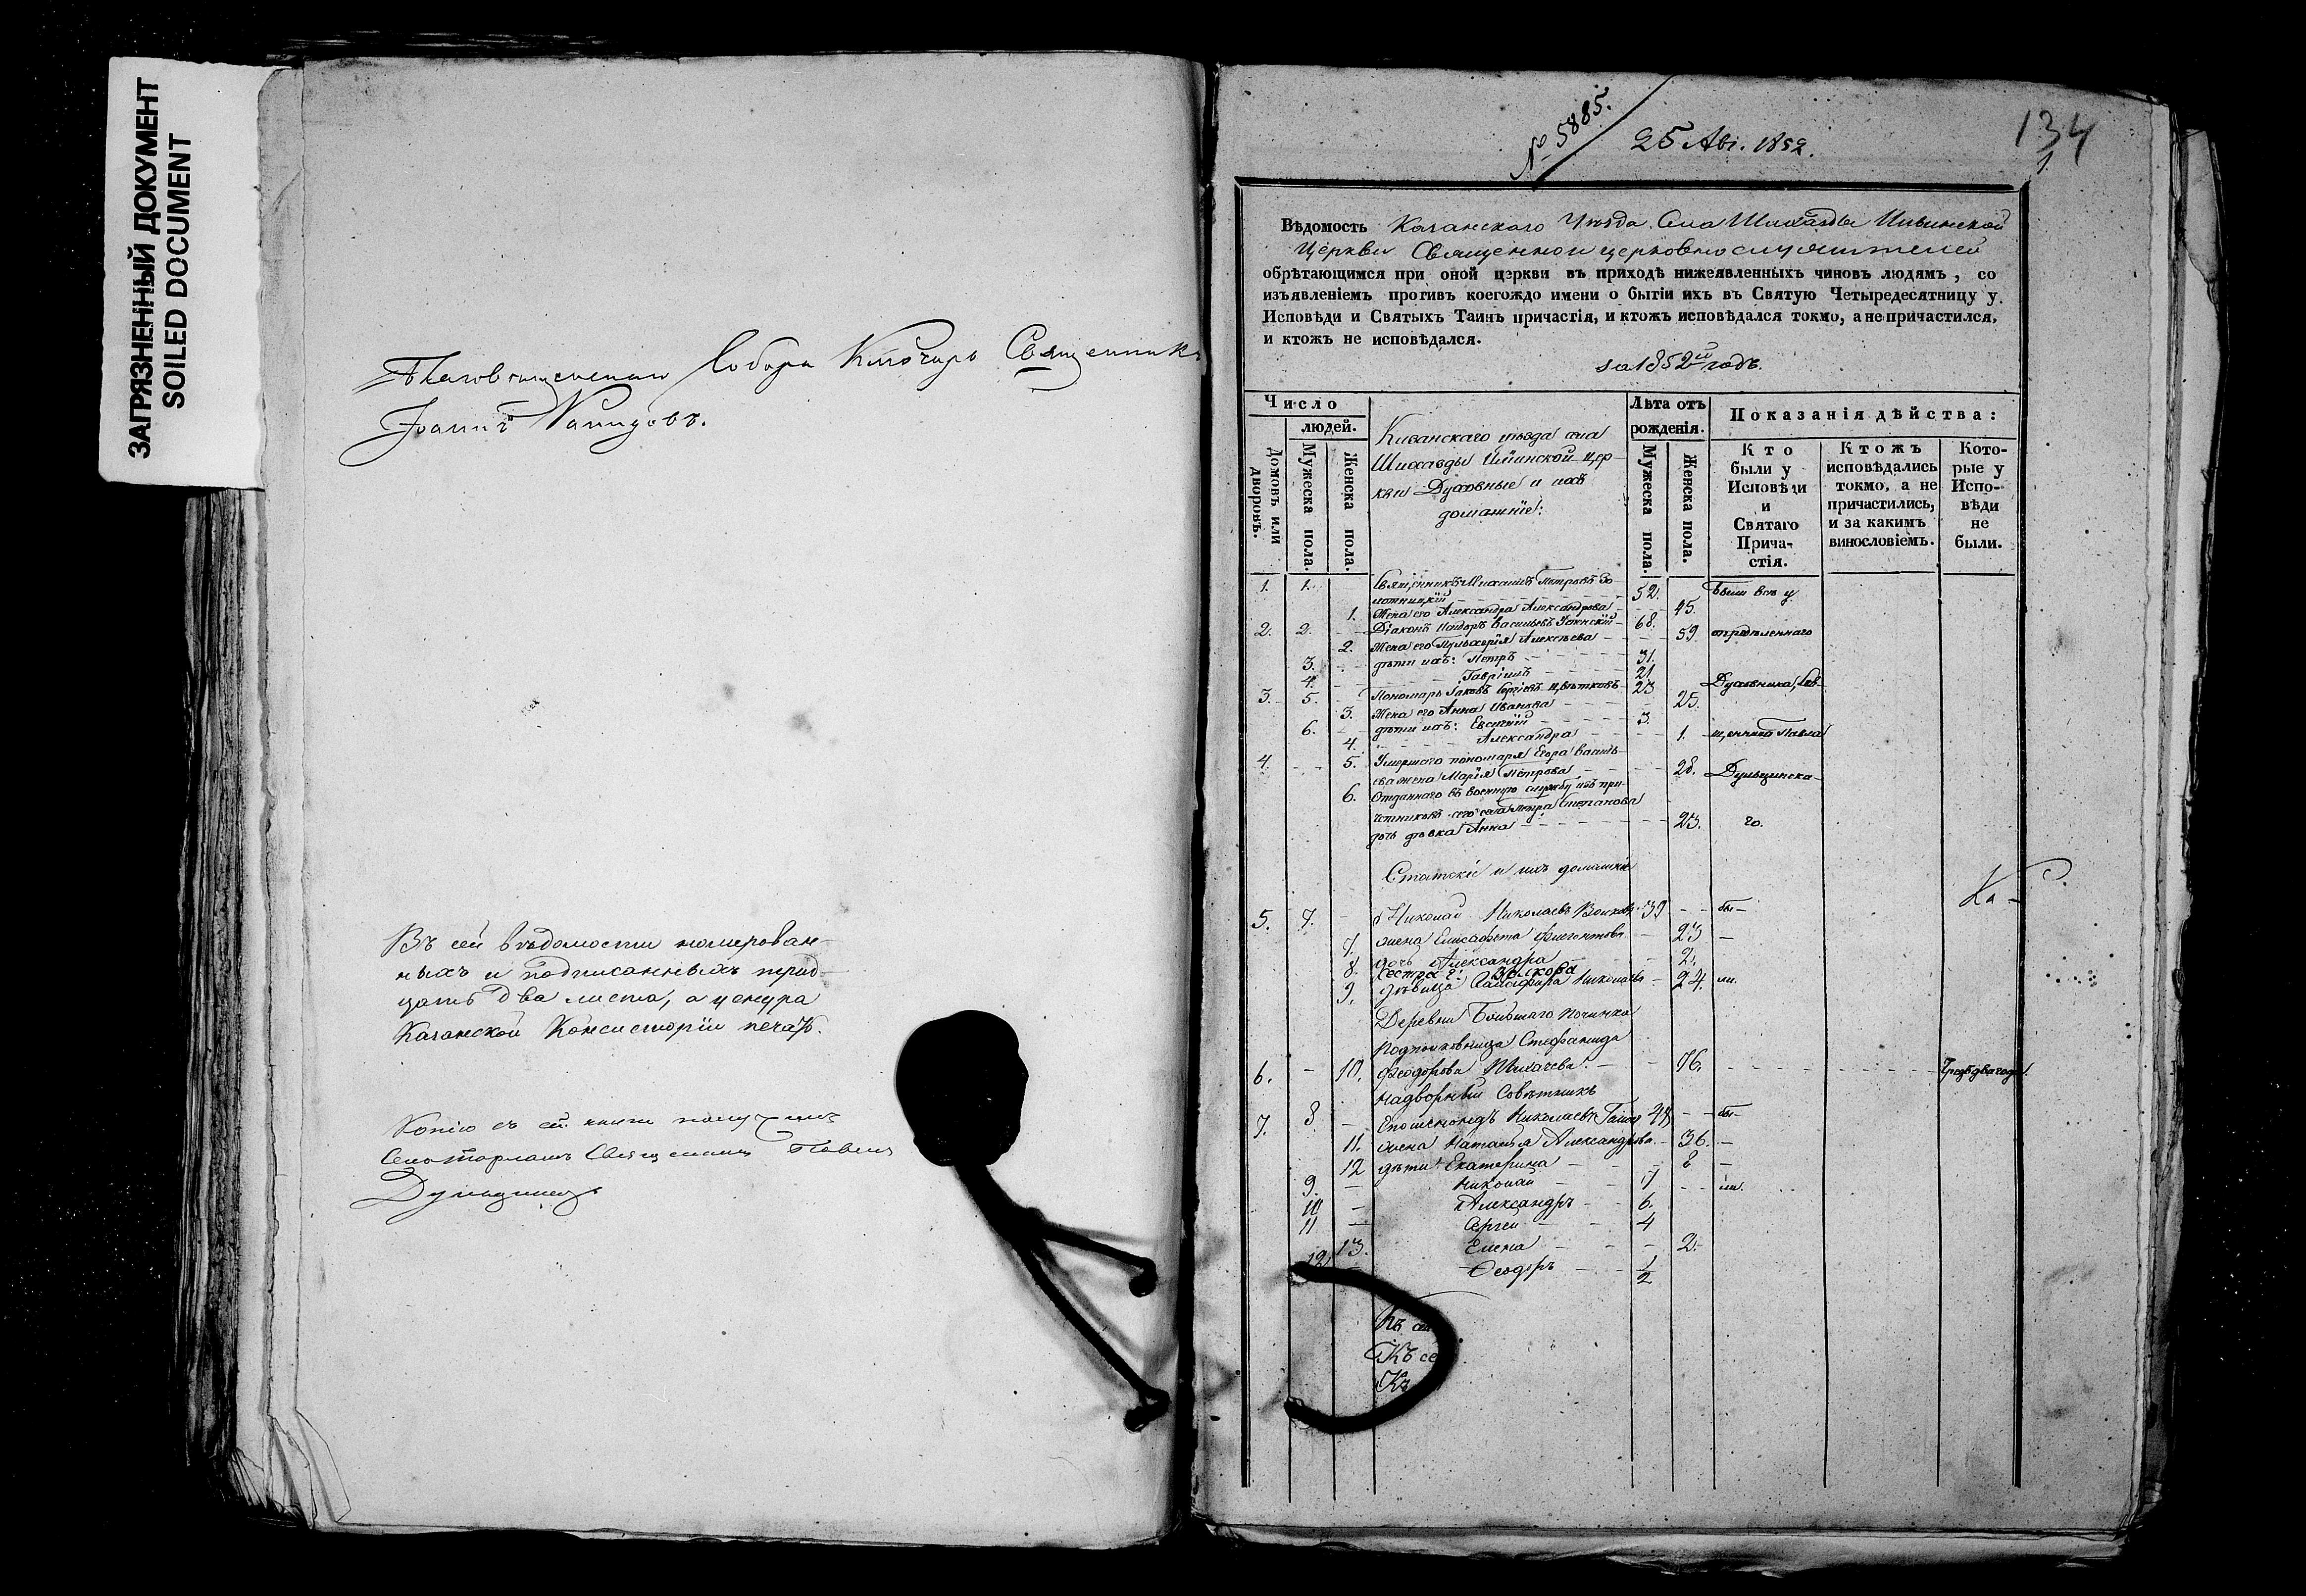 ЗАГРЯЗНЕННЫЙ ДОКУМЕНТ
SOILED DOCUMENT
Благовѣщенскаго Собора Ключарь Священникъ
Іоаннъ
Въ сей вѣдомости номерован-
ныхъ и подписанныхъ трид-
цать два листа, а у шнура
Казанской Консисторіи печать.
Копію съ сей книги получилъ
Священникъ Павелъ
№ 5885.
25 Авг. 1852.
134
1
Вѣдомость Казанскаго Уѣзда Села Шигалды Ильинской
Церкви Священно и церковнослужителей
обрѣтающимся при оной церкви въ приходѣ нижеявленныхъ чиновъ людямъ, со
изъявленіемъ противъ коегождо имени о бытіи ихъ въ Святую Четыредесятницу у
Исповѣди и Святыхъ Таинъ причастія, и ктожъ исповѣдался токмо, а не причастился,
и ктожъ не исповѣдался.
за 1852й годъ.
Число
людей.
Домовъ или дворовъ.
Мужеска пола.
Женска пола.
Казанскаго уѣзда села
Шигалды Ильинской цер-
кви Духовные и ихъ
домашніе:
Лѣта отъ
рожденія.
Мужеска пола.
Женска пола.
Показанія дѣйства:
Кто
были у
Исповѣди
и
Святаго
Прича-
стія.
Ктожъ
исповѣдались
токмо, а не
причастились,
и за какимъ
винословіемъ.
Кото-
рые у
Испо-
вѣди
не
были.
1. 1. Священникъ Михаилъ Петровъ Зо-
лотницкій 52. были всѣ у
1. Жена его Александра Александрова 45.
2. 2. Діаконъ Васильевъ Успенскій 68.
2. Жена его Пульхерія Алексѣева 59 опредѣленнаго
3. дѣти ихъ: Петръ 31.
4. Гавріилъ 21
3. 5. Пономарь Іаковъ Сергіевъ Цвѣтковъ 23 Духовника, Свя-
3. Жена его Анна Иванова 25.
6. дѣти ихъ: Евгеній 3.
4. Александра 1. щенника Павла
4. 5. Умершаго пономаря Егора Василь-
ева жена Марія Петрова 28.
6. Отданнаго въ военную службу изъ при-
четниковъ сего села Петра Степанова
дочь дѣвка Анна 23. го.
Статскіе и ихъ домашніе
5. 7. Николай Николаевъ 39 бы-
7. жена Елисавета 23 –
8. дочь Александра 2.
сестра
9. дѣвица Николаева 24. ли.
Деревни Большаго Починка
Подполковница Стефанида
6. 10. Феодорова 76.
Надворный Совѣтникъ
7. 8 Николаевъ бы-
11. жена Наталья Александрова 36. –
12 дѣти Екатерина 8 –
9. Николай 7 ли.
10 Александръ 6.
11 Сергей 4
13. Елена 2.
12 Феодоръ 1/2
Къ
Къ се
Къ